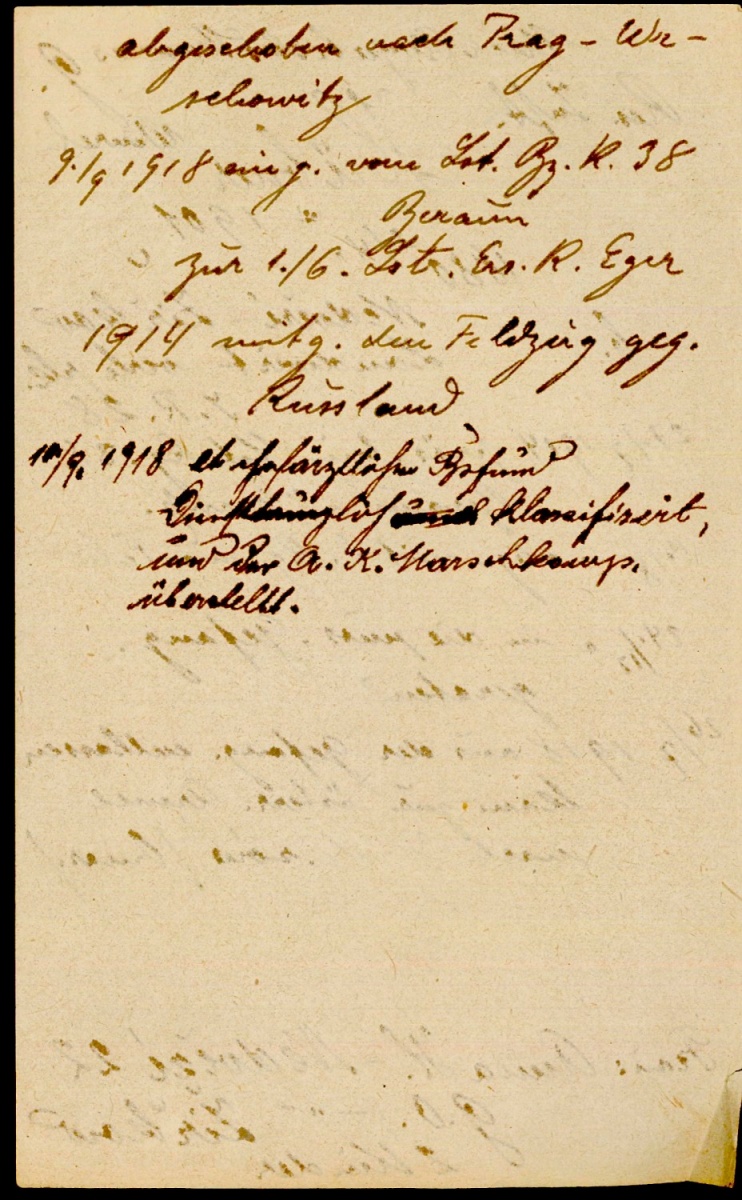 abgeschoben nach Prag - Wr-
schowitz
9./9 1918 eing. vom Lst. Bz. K. 38
Beraun
zur 1./6. Lst. Ers. K. Eger
1914 mitg. den Feldzug geg.
Russland
10/9. 1918 lt chefärztlichen Befund
klassifiziert,
und der A. K. Marschkomp.
überstellt.